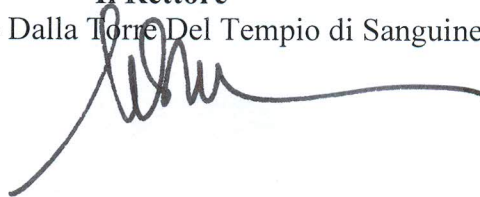 Il Rettore
Dalla Torre Del Tempio di Sanguine